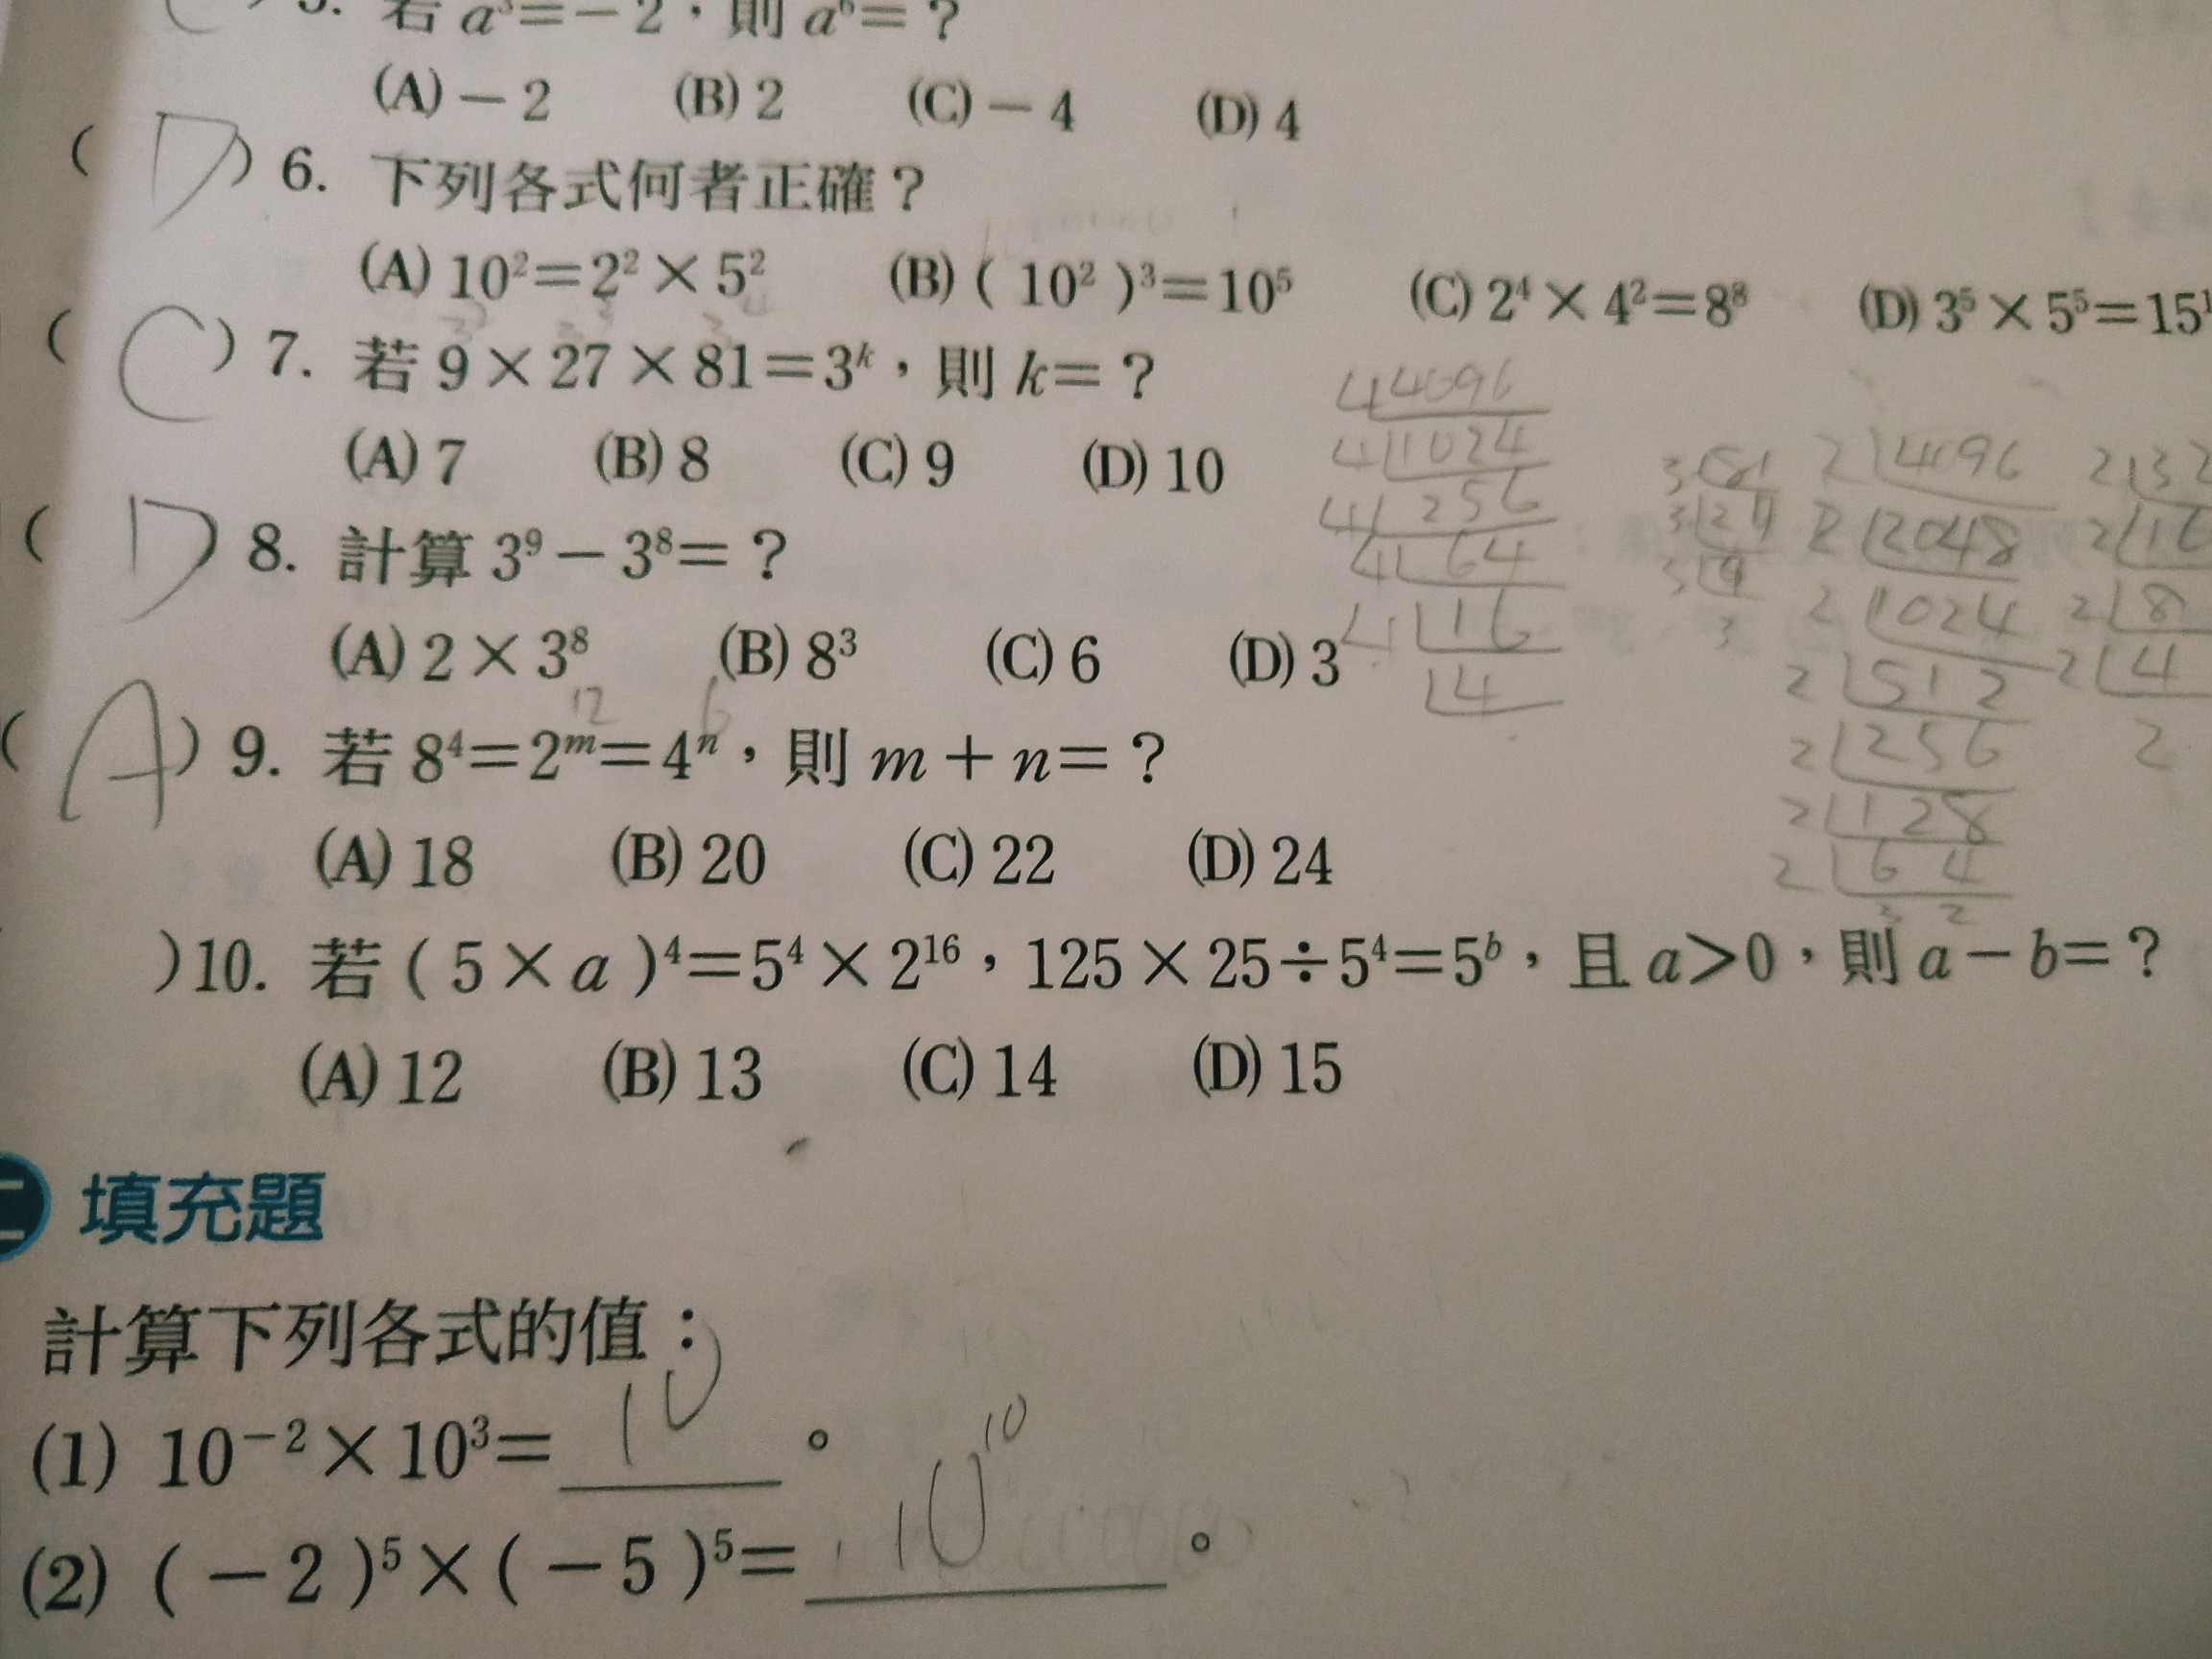 5. 若 a³=－2，則 a⁶=？
(A)－2 (B) 2 (C)－4 (D) 4
( D ) 6. 下列各式何者正確？
(A) 10²=2²×5² (B) ( 10² )³=10⁵ (C) 2⁴×4²=8⁸ (D) 3⁵×5⁵=15¹
( C ) 7. 若 9×27×81=3ᵏ，則 k=？
(A) 7 (B) 8 (C) 9 (D) 10
( D ) 8. 計算 3⁹－3⁸=？
(A) 2×3⁸ (B) 8³ (C) 6 (D) 3
12 6
( A ) 9. 若 8⁴=2ᵐ=4ⁿ，則 m＋n=？
(A) 18 (B) 20 (C) 22 (D) 24
)10. 若 ( 5×a )⁴=5⁴×2¹⁶，125×25÷5⁴=5ᵇ，且 a>0，則 a－b=？
(A) 12 (B) 13 (C) 14 (D) 15
4 4096
4 1024
4 256
4 64
4 16
4
3 81
3 27
3 9
3
2 4096
2 2048
2 1024
2 512
2 256
2 128
2 64
32
2 32
2 16
2 8
2 4
2
二 填充題
計算下列各式的值：
(1) 10⁻²×10³= 10 。
(2) (－2 )⁵×(－5 )⁵= 10¹⁰ 。